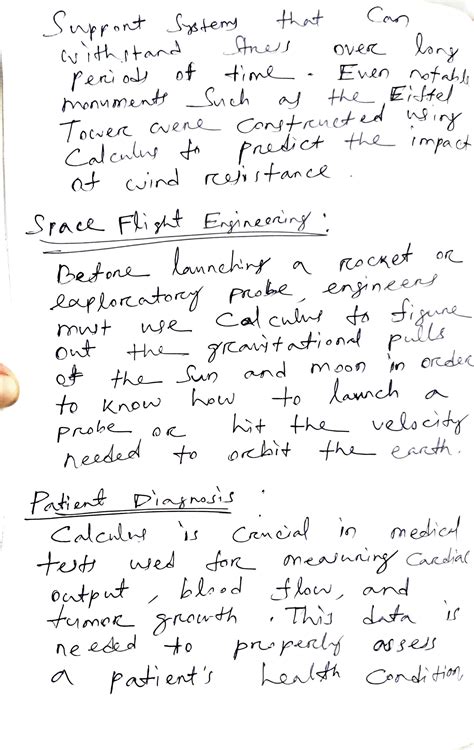 Support Systems that Can
withstand stress over long
periods of time. Even notable
monuments such as the Eiffel
Tower were constructed using
Calculus to predict the impact
of wind resistance.
Space Flight Engineering:
Before launching a rocket or
exploratory probe, engineers
must use Calculus to figure
out the gravitational pulls
of the Sun and moon in order
to know how to launch a
probe or hit the velocity
needed to orbit the earth.
Patient Diagnosis:
Calculus is crucial in medical
tests used for measuring Cardiac
output, blood flow, and
tumor growth. This data is
needed to properly assess
a patient's health Condition,